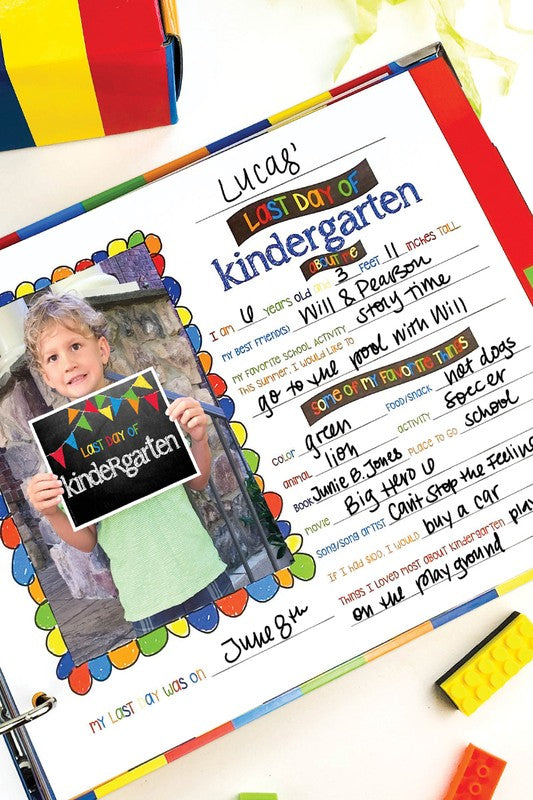 Lucas'
LAST DAY OF
kindergarten
ABOUT ME
I am 6 years old and 3 feet 11 inches tall
my best friend(s) Will & Pearson
my favorite school activity story time
This summer, I would like to
go to the pool with Will
some of my favorite things
color green food/snack hot dogs
animal lion activity soccer
book Junie B. Jones place to go school
movie Big Hero 6
song/song artist Can't Stop the Feeling
If I had $100, I would buy a car
Things I loved most about kindergarten play
on the playground
my last day was on June 8th
LAST DAY OF
kindeRgarten